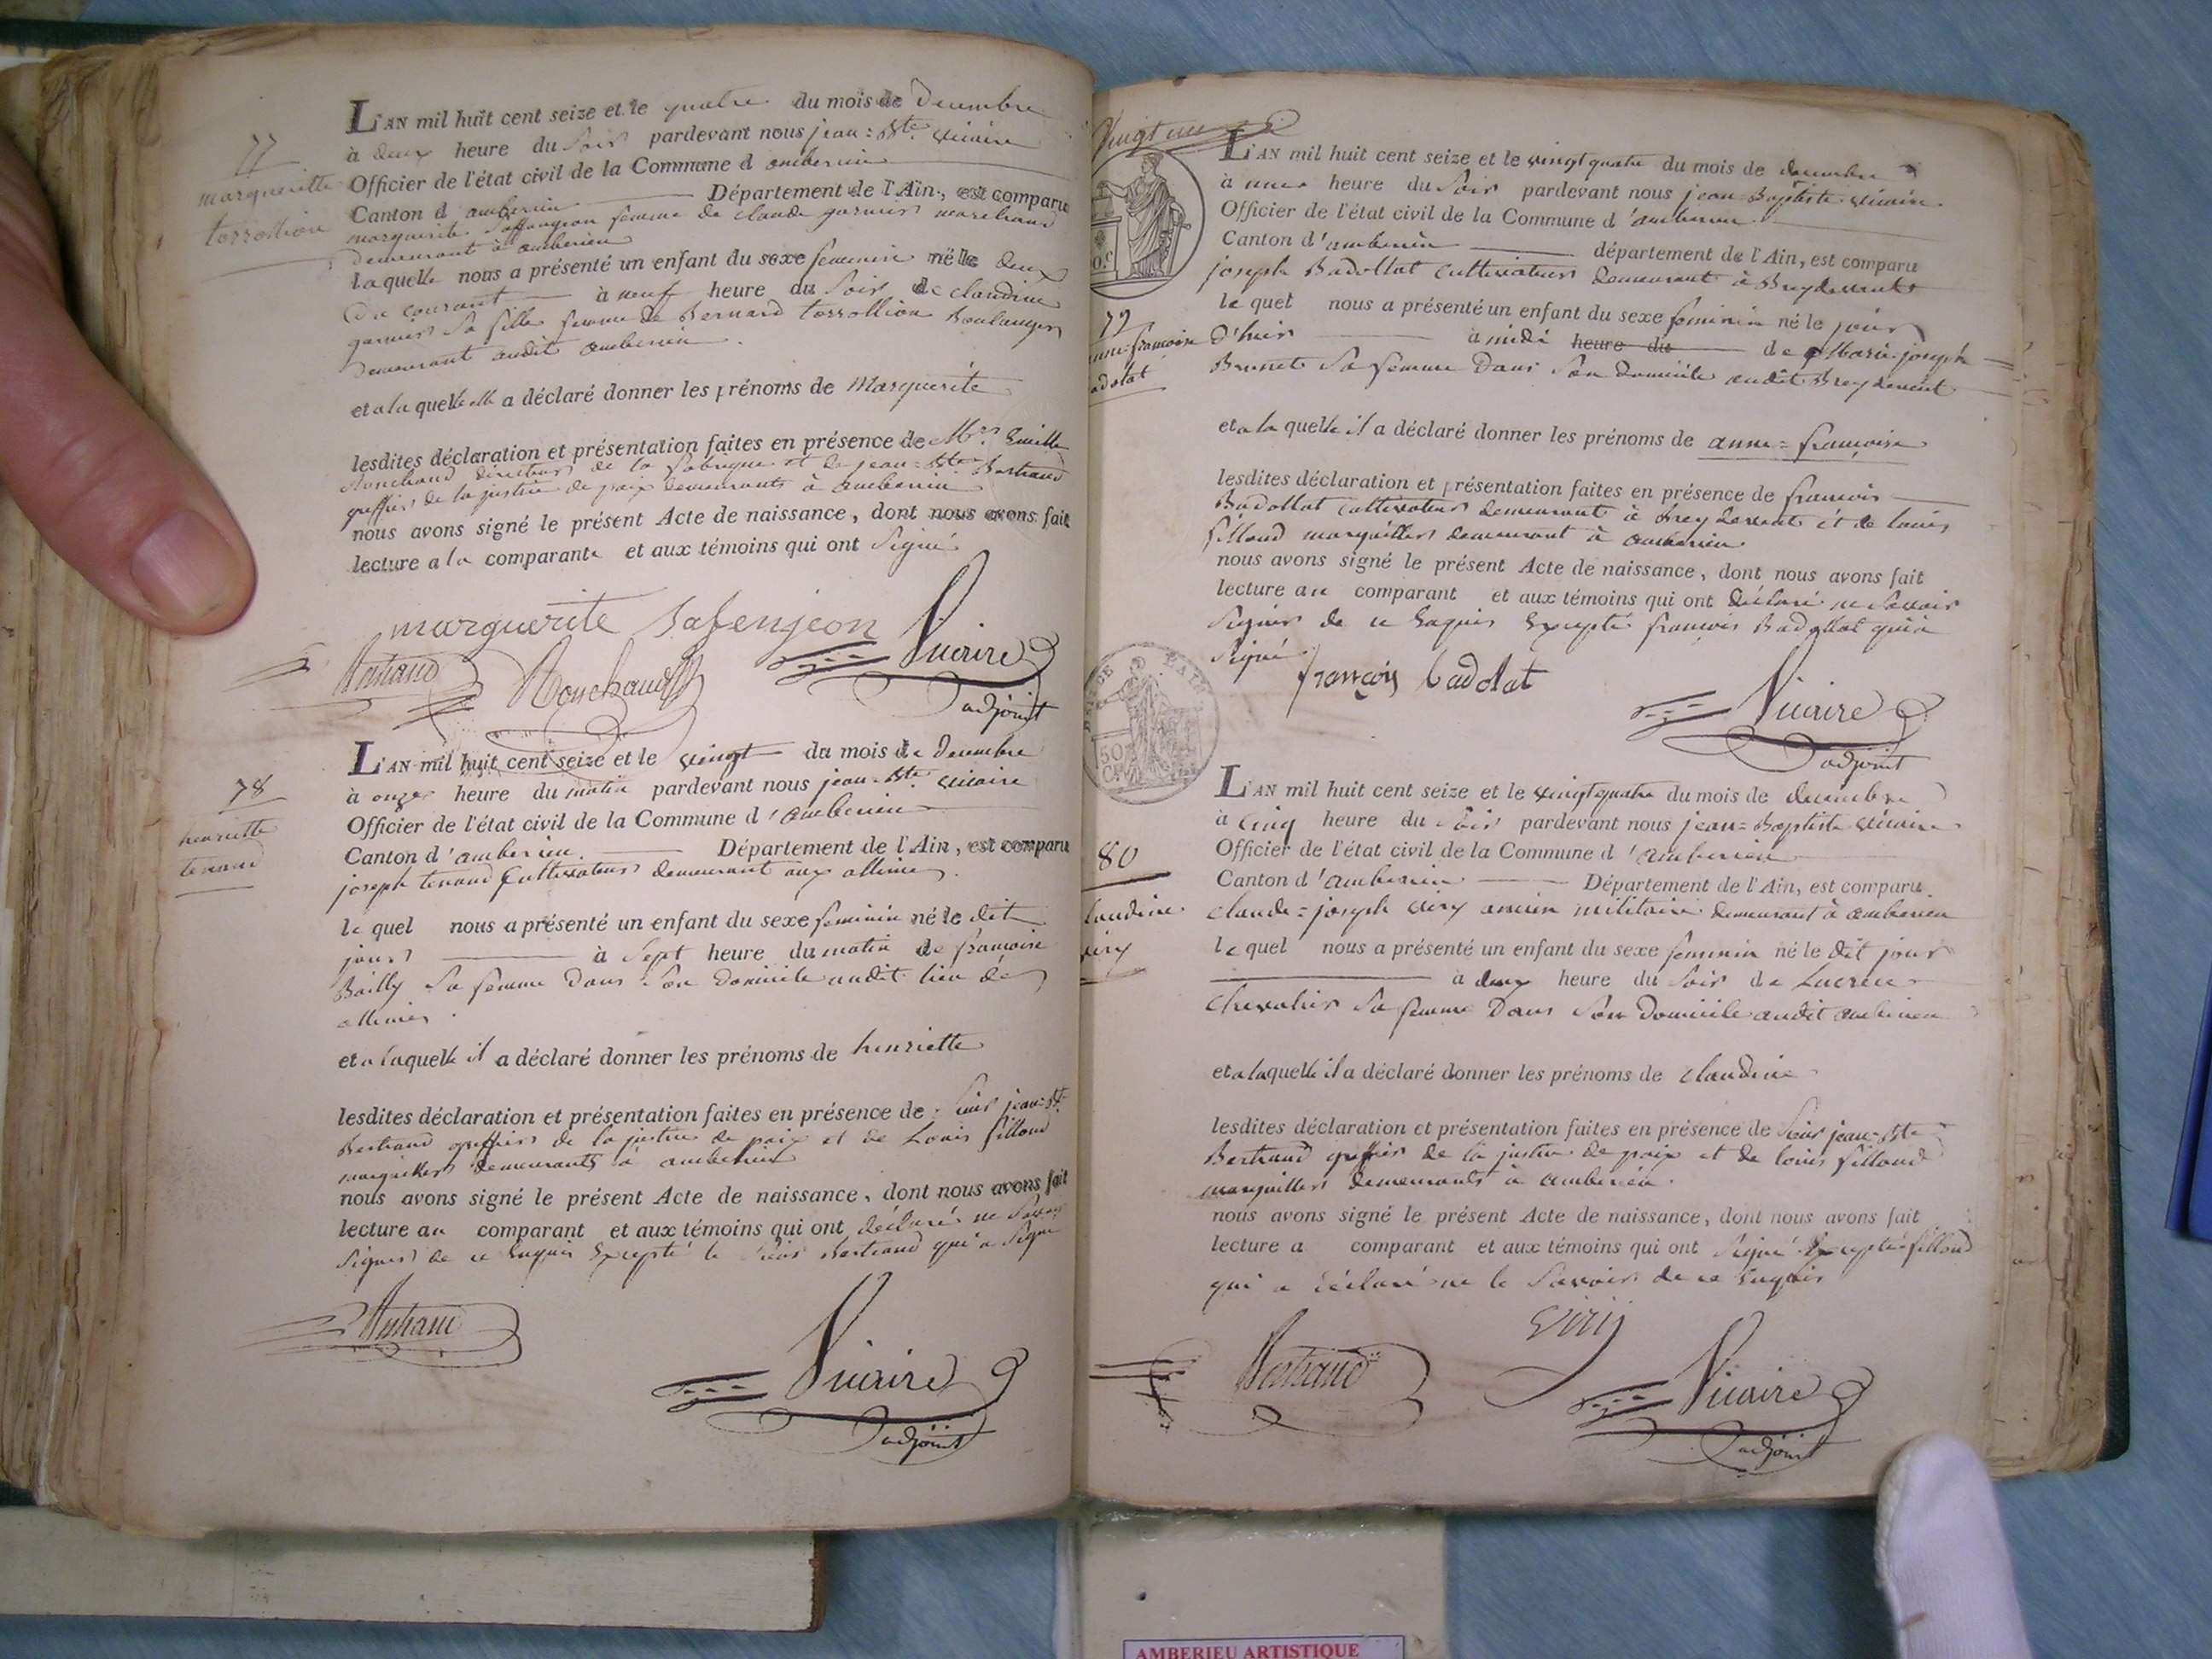 77
margueritte
torrollion
L'AN mil huit cent seize et le quatre du mois de Decembre
à deux heure du Soir pardevant nous jean=Bte vicaire
Officier de l'état civil de la Commune d amberieu
Canton d amberieu Département de l'Ain, est comparu
marguerite femme de claude garnier marchand
demeurant à amberieu
laquelle nous a présenté un enfant du sexe feminin né le deux
Du courant à neuf heure du Soir de claudine
garnier sa fille femme de Bernard torrollion Boulanger
Demeurant audit amberieu
et a la quelle elle a déclaré donner les prénoms de Marguerite
lesdites déclaration et présentation faites en présence de Mrs
Ronchaud directeur de la fabrique et de jean=Bte Bertrand
greffier de la justice de paix demeurants à amberieu
nous avons signé le présent Acte de naissance, dont nous avons fait
lecture a la comparante et aux témoins qui ont Signé
marguerite Safenjeon
Vicaire
Bertrand Ronchaud
adjoint
78
henriette
tenand
L'AN mil huit cent seize et le vingt du mois de Decembre
à onze heure du matin pardevant nous jean=Bte vicaire
Officier de l'état civil de la Commune d'amberieu
Canton d'amberieu Département de l'Ain, est comparu
joseph tenand Cultivateur demeurant aux allimes
le quel nous a présenté un enfant du sexe feminin né le dit
jour à Sept heure du matin de francoise
Bailly Sa femme Dans Son Domicile audit lieu des
allimes
et a laquelle il a déclaré donner les prénoms de henriette
lesdites déclaration et présentation faites en présence de Sieur jean=Bte
Bertrand greffier de la justice de paix et de Louis filloud
marguiller demeurants à amberieu
nous avons signé le présent Acte de naissance, dont nous avons fait
lecture au comparant et aux témoins qui ont déclaré ne Savoir
Signer de ce Enquis Excepté le Sieur Bertrand qui a Signé
Bertrand
Vicaire
adjoint
Vingt une
L'AN mil huit cent seize et le vingt quatre du mois de decembre
à une heure du Soir pardevant nous jean Baptiste vicaire
Officier de l'état civil de la Commune d'amberieu
Canton d'amberieu département de l'Ain, est comparu
joseph Badollat Cultivateur Demeurant à Breydevent
le quel nous a présenté un enfant du sexe feminin né le jour
79
anne=francoise
adolat
d'hier à midi heure du de Marie=joseph
Brunet Sa femme Dans Son Domicile audit Breydevent
et a la quelle il a déclaré donner les prénoms de anne=françoise
lesdites déclaration et présentation faites en présence de francois
Badollat Cultivateur demeurant à Breydevent et de louis
filloud marguiller demeurant à amberieu
nous avons signé le présent Acte de naissance, dont nous avons fait
lecture au comparant et aux témoins qui ont déclaré ne Savoir
Signer de ce Enquis Excepté francois Badollat qui a
Signé
françois badolat
Vicaire
adjoint
50
L'AN mil huit cent seize et le vingt quatre du mois de decembre
à Cinq heure du Soir pardevant nous jean=Baptiste vicaire
Officier de l'état civil de la Commune d'amberieu
80
Canton d'amberieu Département de l'Ain, est comparu
laudine
viry
claude=joseph viry ancien militaire demeurant à amberieu
le quel nous a présenté un enfant du sexe feminin né le dit jour
à deux heure du Soir de Lucrece
Chevalier Sa femme Dans Son Domicile audit amberieu
et a laquelle il a déclaré donner les prénoms de claudine
lesdites déclaration et présentation faites en présence de Sieur jean=Bte
Bertrand greffier de la justice de paix et de louis filloud
marguiller demeurants à amberieu
nous avons signé le présent Acte de naissance, dont nous avons fait
lecture a comparant et aux témoins qui ont Signé Excepté filloud
qui a déclaré ne le Savoir de ce Enquis
Viry
Bertrand
Vicaire
adjoint
AMBERIEU ARTISTIQUE